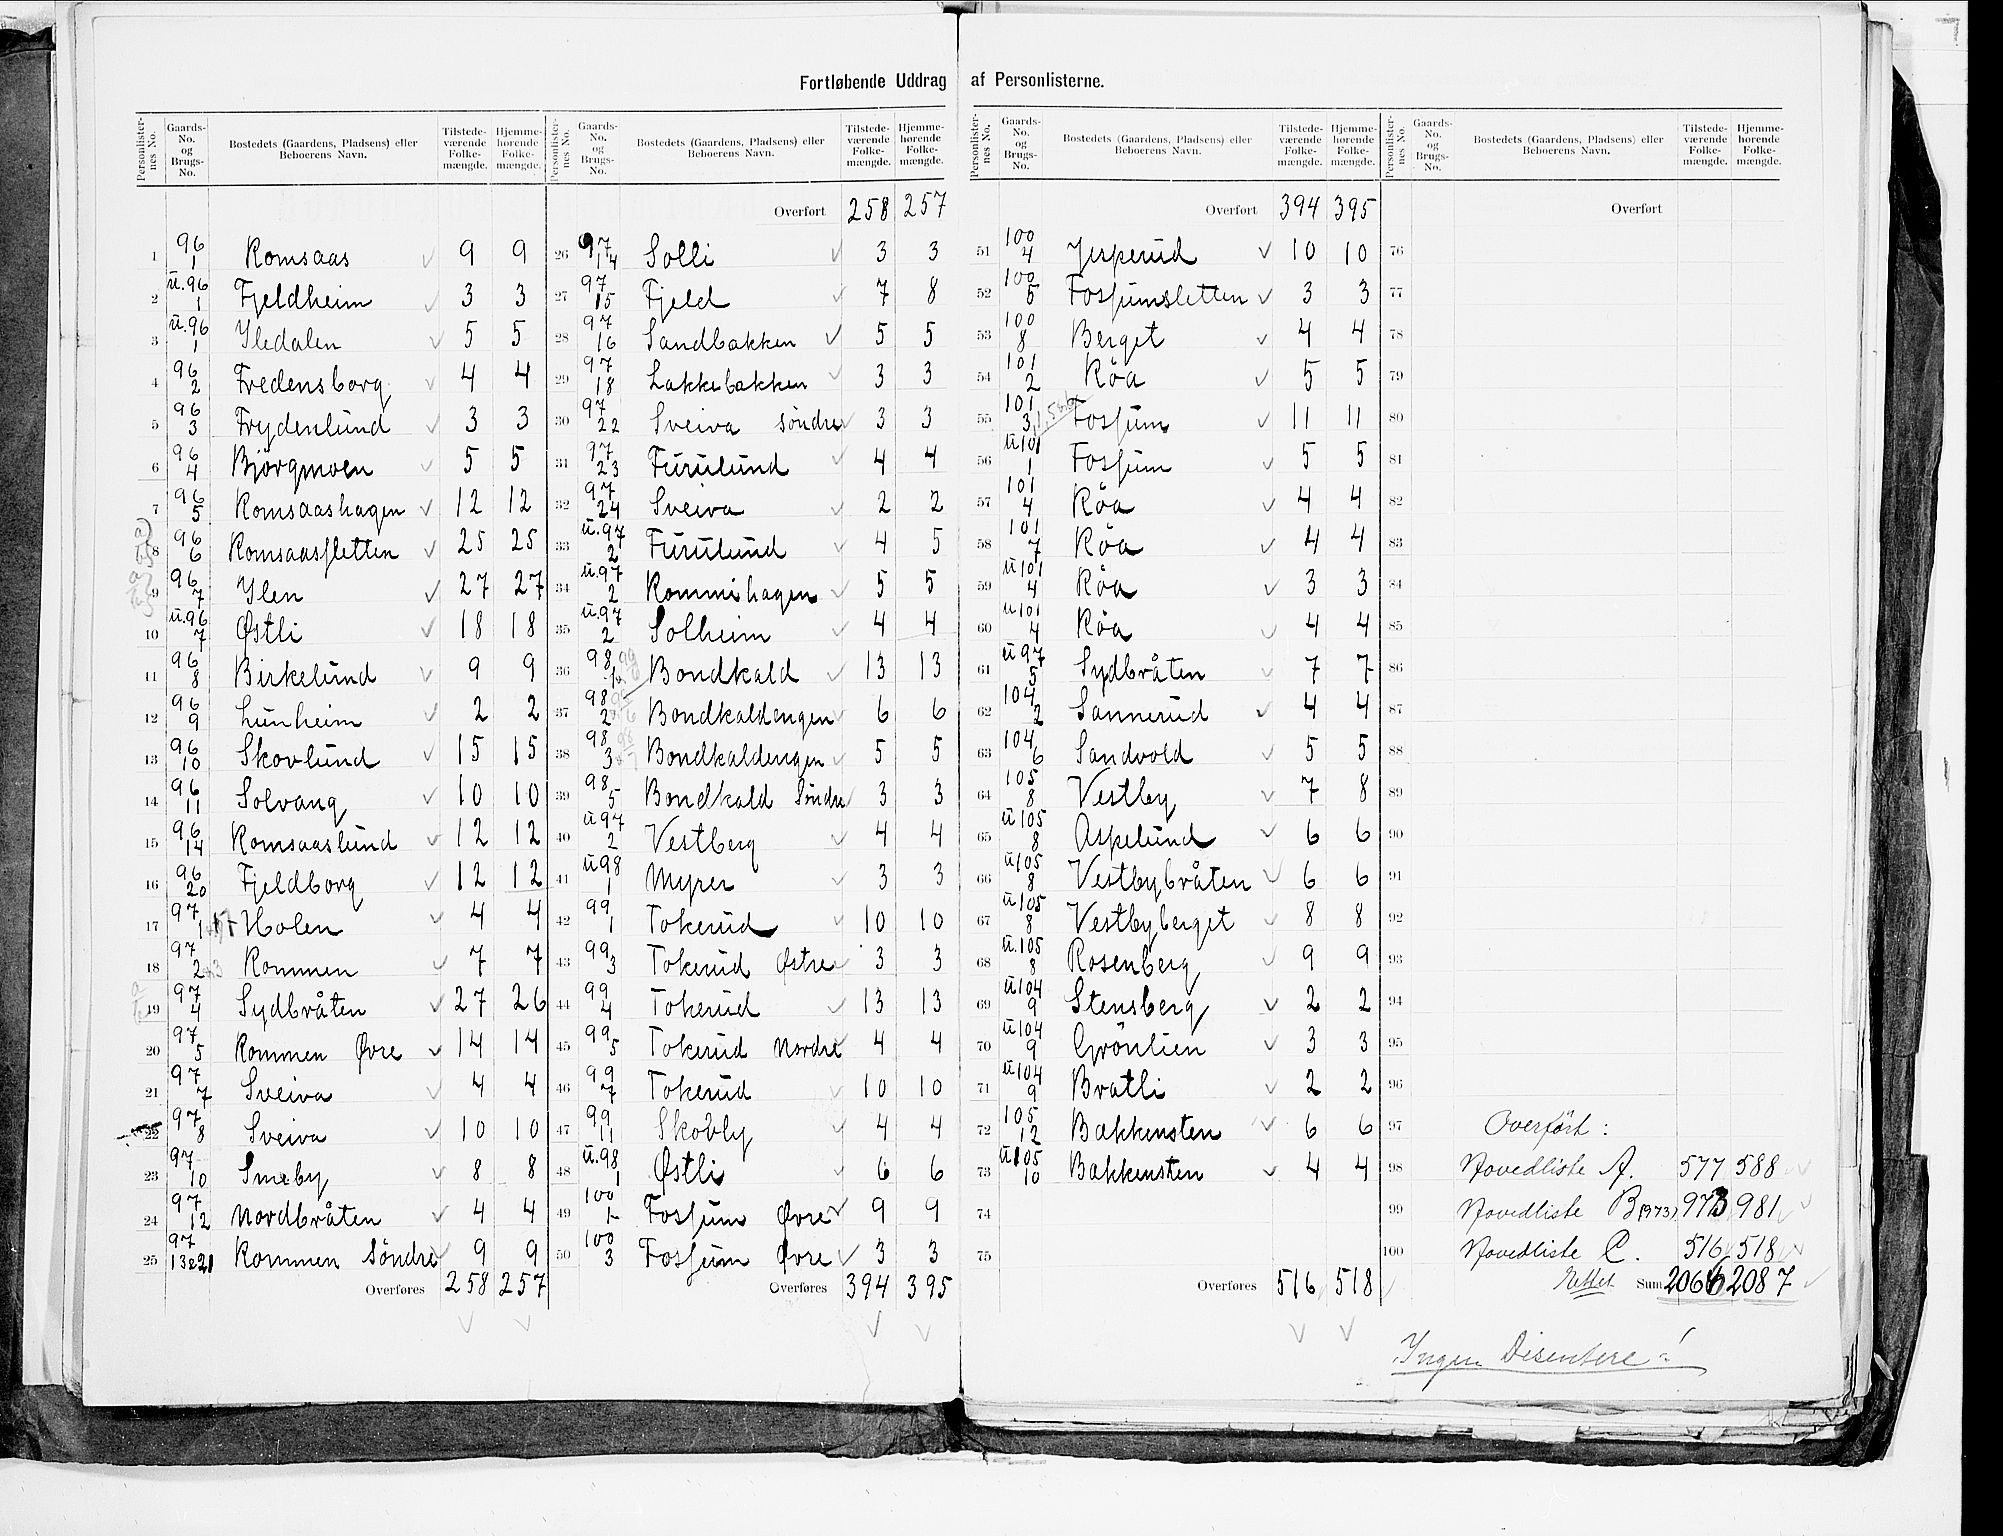 Fortløbende Uddrag af Personlisterne.
Personlisternes No. Gaards-No. og Brugs-No. Bostedets (Gaardens, Pladsens) eller Beboerens Navn. Tilstedeværende Folkemængde. Hjemmehørende Folkemængde.
1 96/1 Romsaas 9 9
2 u.96/1 Fjeldheim 3 3
3 u.96/1 Yledalen 5 5
4 96/2 Fredensborg 4 4
5 96/3 Frydenlund 3 3
6 96/4 Bjørgmoen 5 5
7 96/5 Romsaashagen 12 12
8 96/6 Romsaassletten 25 25
9 96/7 Ylen 27 27
10 u.96/7 Østli 18 18
11 96/8 Birkelund 9 9
12 96/9 Lunheim 2 2
13 96/10 Skovlund 15 15
14 96/11 Solvang 10 10
15 96/14 Romsaaslund 12 12
16 96/20 Fjeldborg 12 12
17 97/1 Holen 4 4
18 97/2 Rommen 7 7
19 97/4 Sydbråten 27 26
20 97/5 Rommen Øvre 14 14
21 97/7 Sveiva 4 4
22 97/8 Sveiva 10 10
23 97/10 Smeby 8 8
24 97/12 Nordbråten 4 4
25 97/13&21 Rommen Søndre 9 9
Overføres 258 257
Personlisternes No. Gaards-No. og Brugs-No. Bostedets (Gaardens, Pladsens) eller Beboerens Navn. Tilstedeværende Folkemængde. Hjemmehørende Folkemængde.
Overført 258 257
26 97/14 Solli 3 3
27 97/15 Fjeld 7 8
28 97/16 Sandbakken 5 5
29 97/18 Lakkebakken 3 3
30 97/22 Sveiva Søndre 3 3
31 97/23 Furulund 4 4
32 97/24 Sveiva 2 2
33 u.97/2 Furulund 4 5
34 u.97/2 Rommihagen 5 5
35 u.97/2 Solheim 4 4
36 98/1 Bondkald 13 13
37 98/2 Bondkaldengen 6 6
38 98/3 Bondkaldengen 5 5
39 98/5 Bondkald Søndre 3 3
40 u97/2 Vestberg 4 4
41 u98/1 Myrer 3 3
42 99/1 Tokerud 10 10
43 99/3 Tokerud Østre 3 3
44 99/4 Tokerud 13 13
45 99/5 Tokerud Nordre 4 4
46 99/7 Tokerud 10 10
47 99/11 Skovly 4 4
48 u.98/1 Østli 6 6
49 100/1 Fossum Øvre 9 9
50 100/3 Fossum Øvre 3 3
Overføres 394 395
Personlisternes No. Gaards-No. og Brugs-No. Bostedets (Gaardens, Pladsens) eller Beboerens Navn. Tilstedeværende Folkemængde. Hjemmehørende Folkemængde.
Overført 394 395
51 100/4 Jesperud 10 10
52 100/5 Fossumsletten 3 3
53 100/8 Berget 4 4
54 101/2 Röa 5 5
55 101/3,1,5&6 Fossum 11 11
56 u101/1 Fossum 5 5
57 101/4 Röa 4 4
58 101/7 Röa 4 4
59 u101/4 Röa 3 3
60 u101/4 Röa 4 4
61 u97/5 Sydbråten 7 7
62 104/2 Sannerud 4 4
63 104/6 Sandvold 5 5
64 105/8 Vestby 7 8
65 u105/8 Aspelund 6 6
66 u105/8 Vestbybråten 6 6
67 u105/8 Vestbyberget 8 8
68 u.105/8 Rosenberg 9 9
69 u104/9 Stensberg 2 2
70 u104/9 Grönlien 3 3
71 u104/9 Bratli 2 2
72 105/12 Bakkensten 6 6
73 u105/10 Bakkensten 4 4
74
75
Overføres 516 518
Personlisternes No. Gaards-No. og Brugs-No. Bostedets (Gaardens, Pladsens) eller Beboerens Navn. Tilstedeværende Folkemængde. Hjemmehørende Folkemængde.
Overført
76
77
78
79
80
81
82
83
84
85
86
87
88
89
90
91
92
93
94
95
96
97 Overført:
98 Hovedliste A. 577 588
99 Hovedliste B (973) 973 981
100 Hovedliste C. 516 518
Rettet Sum 2066 2087
Yngen Disentere!